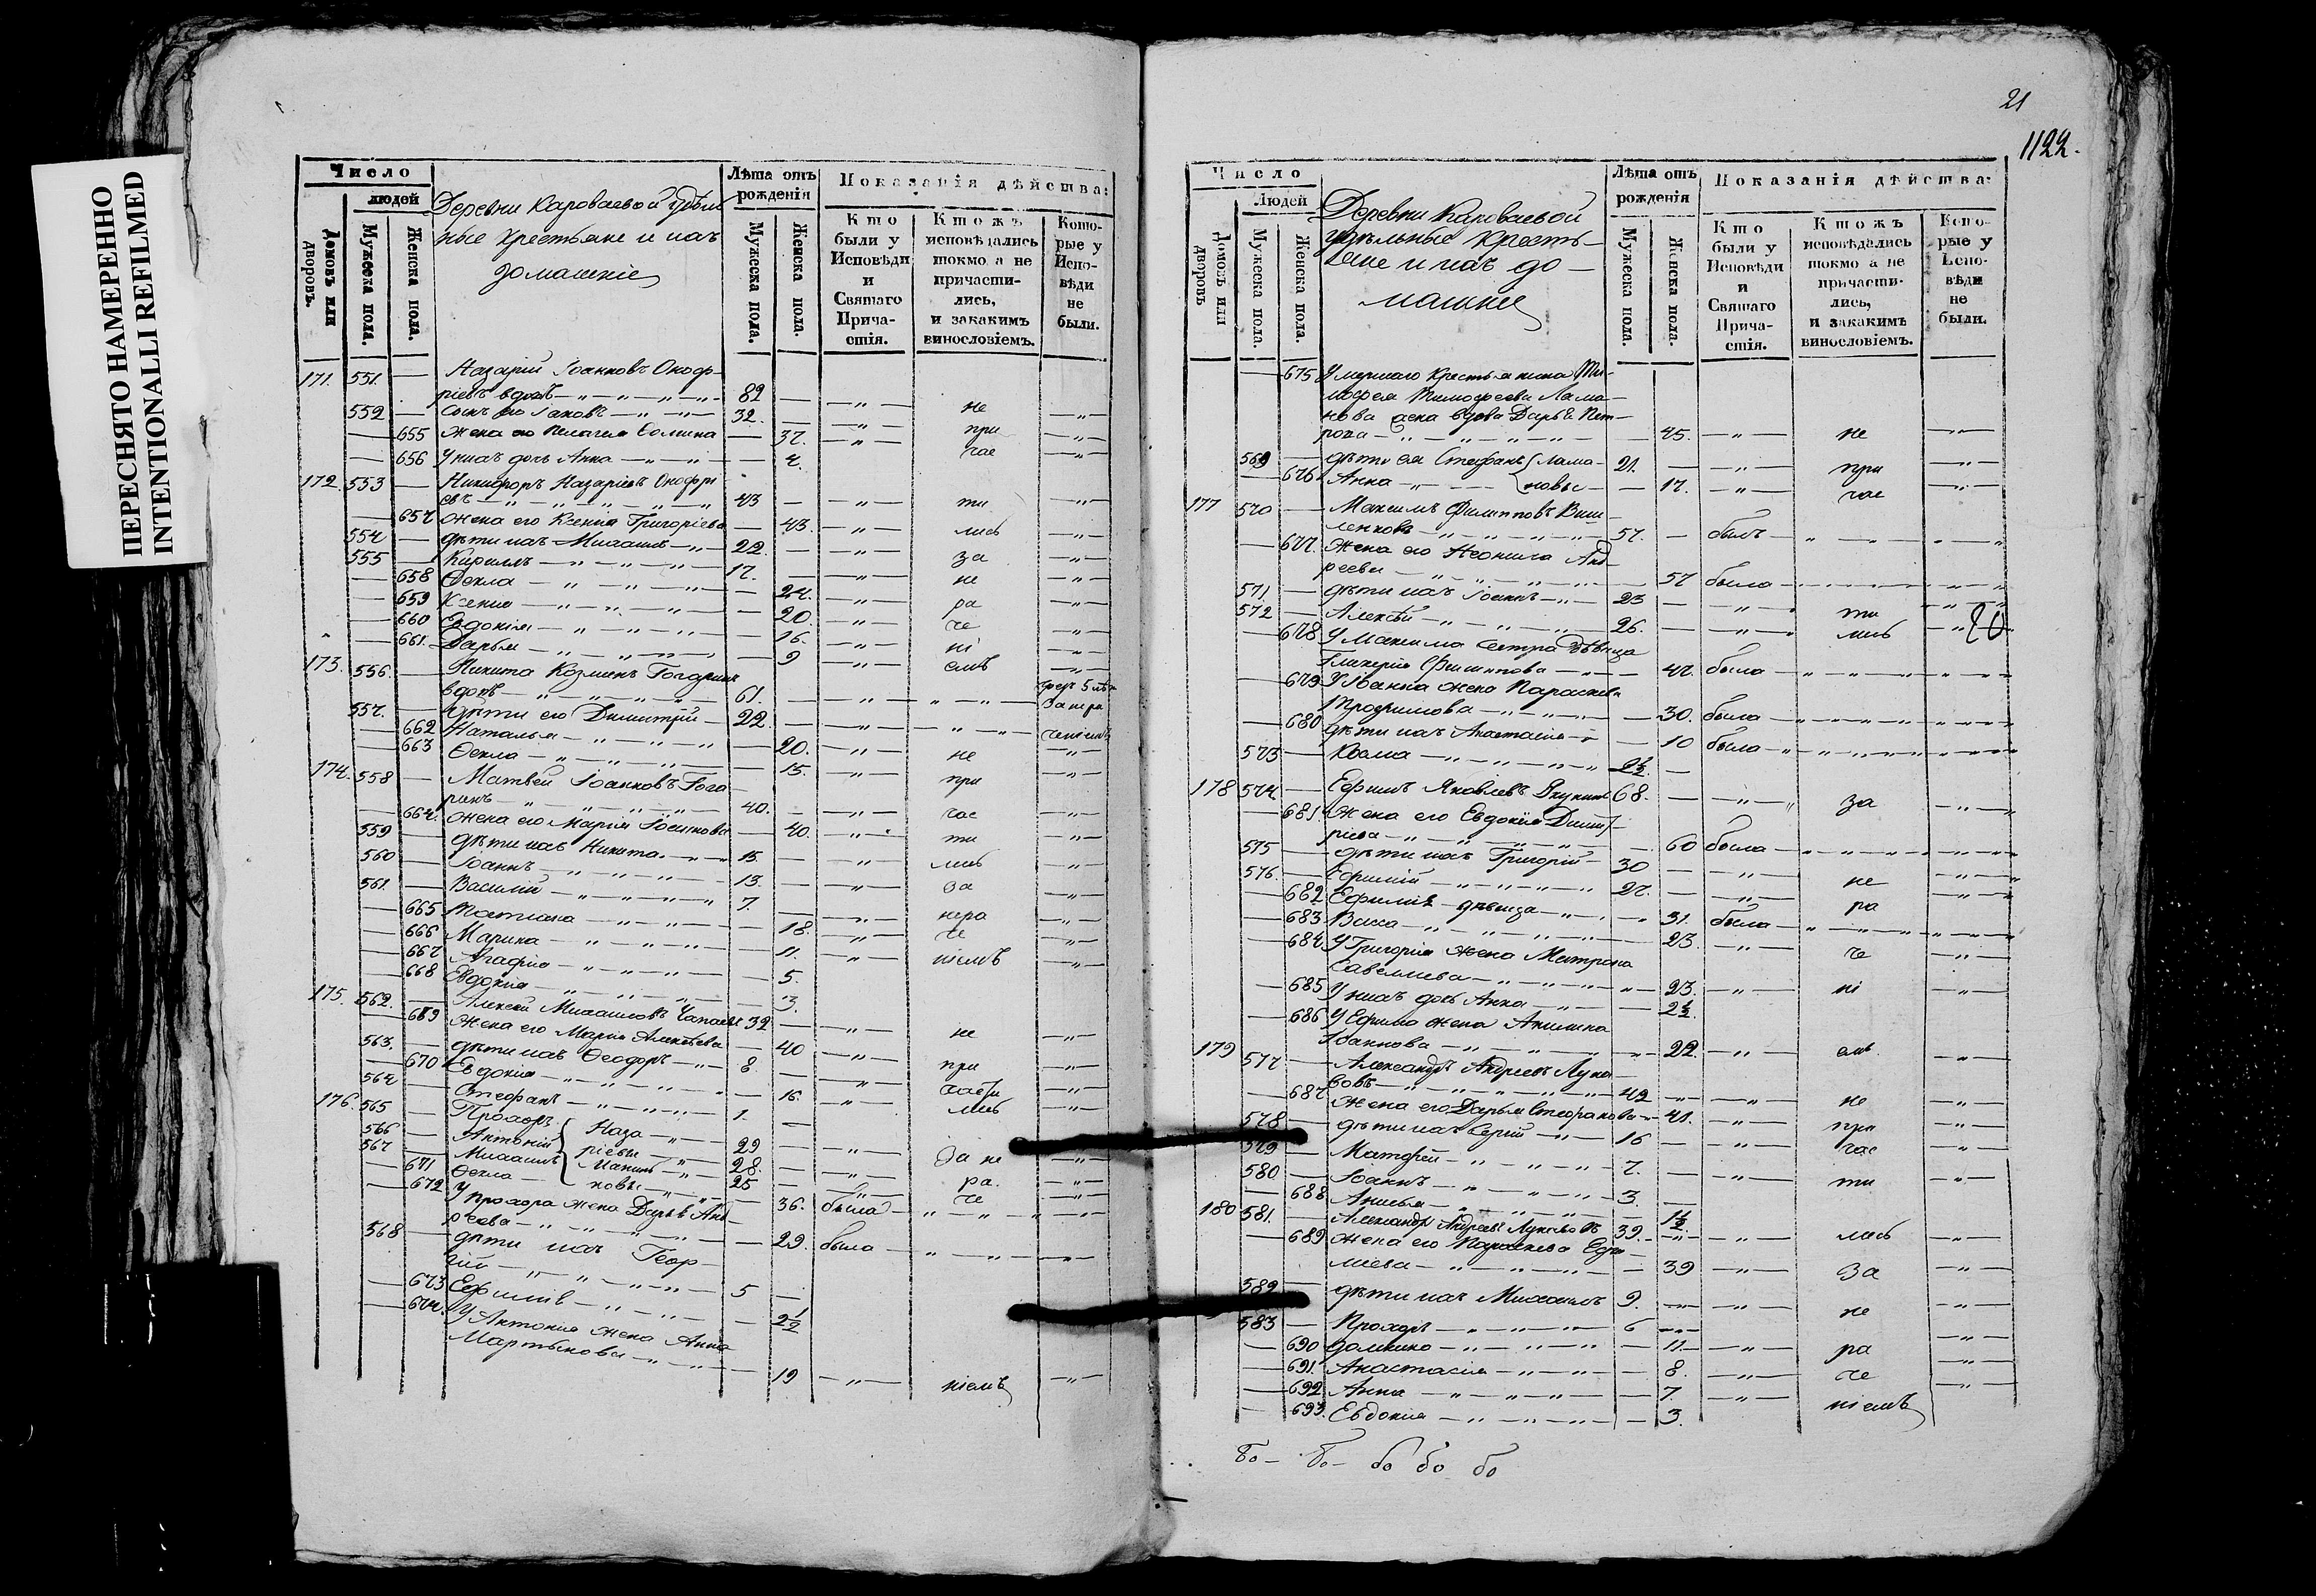 ПЕРЕСНЯТО НАМЕРЕННО
INTENTIONALLI REFILMED
Число
людей
Домовъ или дворовъ.
Мужеска пола.
Женска пола.
Деревни Караваевой удѣль
ные крестьяне и ихъ
домашніе
Лѣта отъ рожденія
Мужеска пола.
Женска пола.
Показанія дѣйства:
Кто были у Исповѣди и Святаго Прича-стія.
Ктожъ исповѣдались токмо а не причасти-лись, и закакимъ винословіемъ.
Кото-рые у Испо-вѣди не были.
171. 551. — Назарій Іоанновъ Оноф-
ріевъ вдовъ 82 — не
552 — Сынъ его Іаковъ 32. — при
— 655 жена его Пелагея — 37. час
— 656 У нихъ дочь Анна — 4.
172. 553 — Никифоръ Назаріевъ Онофрі
евъ 43 — ти
— 657 Жена его Ксенія Григоріева — 43. лись
554 — дѣти ихъ Михаилъ 22. — за
555 — Кириллъ 17. — не
— 658 Ѳекла — 24. ра
— 659 Ксенія — 20. че
— 660 Евдокія — 16. ні
— 661. Дарья — 9 емъ
173. 556. — Никита Козминъ Гогаринъ
вдовъ 61. —
557. — дѣти его Димитрій 22. —
— 662 Наталья — 20. не
— 663 Ѳекла — 15. при
174. 558 — Матвей Іоанновъ Гога
ринъ 40. — час
— 664. жена его Марія — 40. ти
559 — дѣти ихъ Никита 15. — лись
560 — Іоаннъ 13. — за
561. — Василій 7. — нера
— 665 Татіана — 18. че
— 666 Марина — 11. ніемъ
— 667 Агафія — 5.
— 668 Евдокия — 3.
175. 562. — Алексей Михаиловъ 32 — не
— 669 Жена его Марія Алексѣева — 40 при
563. — дѣти ихъ Ѳеодоръ 8. —
— 670 Евдокия — 16 части
564 — Стефанъ 1. — лись
176. 565 — Прохоръ Наза 29 —
566 — Антоній ріевы 28. — за не
567 — Михаилъ 25 — ра.
— 671 Ѳекла новы — 36. была че
— 672 У Прохора жена Дарья Анд
реева — 29. была
568 — дѣти ихъ Геор
гій 5 —
— 673 Ефимія — 2½
— 674. У Антонія жена Анна
Мартынова — 19 ніемъ
21
1122.
Число
Людей
Домовъ или дворовъ
Мужеска пола.
Женска пола.
Деревни Караваевой
удѣльные кресть-
яне и ихъ до-
машніе
Лѣта отъ рожденія
Мужеска пола.
Женска пола.
Показанія дѣйства:
Кто были у Исповѣди и Святаго Прича-стія.
Ктожъ исповѣдались токмо а не причасти-лись, и закакимъ винословіемъ.
Кото-рые у Испо-вѣди не были.
— 675 Умершаго крестьянина Ти-
мофея Тимофеева Лама-
нова жена вдова Дарья Пет-
рова — 45. не
569 — дѣти ея Стефанъ Лама- 21. — при
— 676 Анна новы — 17. час
177 570 — Максимъ Филипповъ Виш
57. — былъ
— 677. Жена его Анд
реева — 57 была
571 — дѣти ихъ Іоаннъ 23 — ти
572 — Алексѣй 26. — лись
— 678 У Максима сестра дѣвица
Гликерія Филиппова — 47. была
— 679 У Іоанна жена Параскева
Трофимова — 30. была
— 680 дѣти ихъ Анастасія — 10 была
573 — Козма 2½ —
178 574 — Ефимъ Яковлевъ 68. — за
— 681. Жена его Евдокія Димит
ріева — 60 была
575 — дѣти ихъ Григорій 30 — не
576. — Ефимій 27. — ра
— 682 Ефимія дѣвица — 31. была
— 683 Васса — 23. че
— 684 У Григорія жена Матрона
Савельева — 23. ні
— 685 У нихъ дочь Анна — 2½.
— 686 У Ефима жена Акилина
Іоаннова — 22. емъ
179 577 — Александръ Андреевъ Луко
вовъ 42 не
— 687 Жена его Дарья Стефанова 41. при
578 — дѣти ихъ Сергій 16 — час
579 — Матфей 7. — ти
580 — Іоаннъ 3. —
— 688 Анисья — 1½
180 581. — Александръ Андреевъ 39. лись
— 689 Жена его Параскева Ефи
міева — 39 за
582 — дѣти ихъ Михаилъ 9. не
583 — Прохоръ 6
— 690 Домника — 11 ра
— 691. Анастасія — 8. че
— 692 Анна — 7. ніемъ
— 693. Евдокия — 3.
бо бо бо бо бо